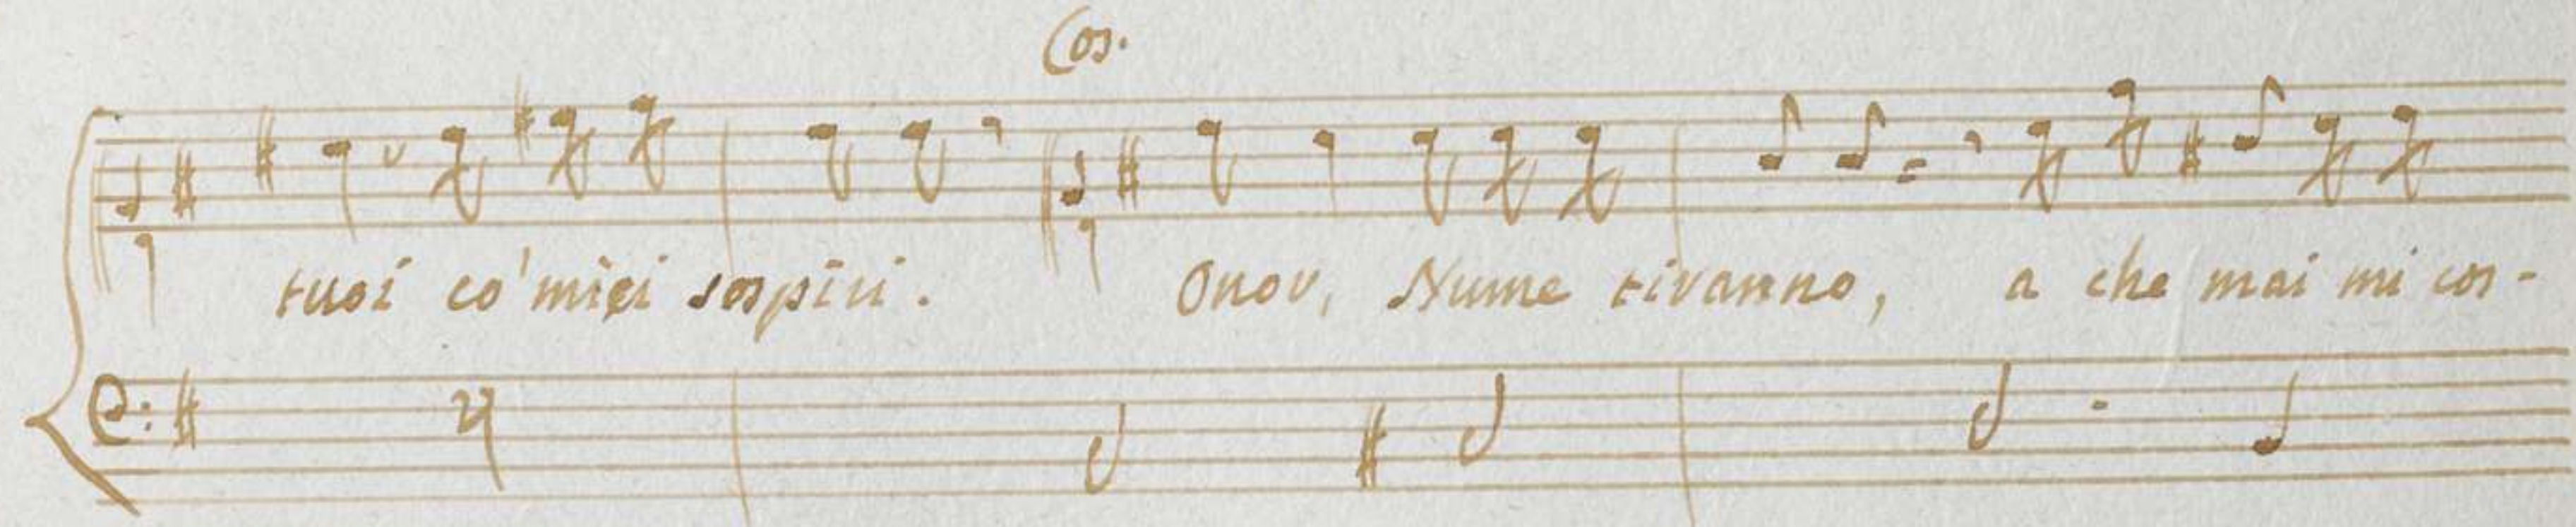 Cos.
tuoi co' miei sospiri. Onor, Nume tiranno, a che mai mi cos-